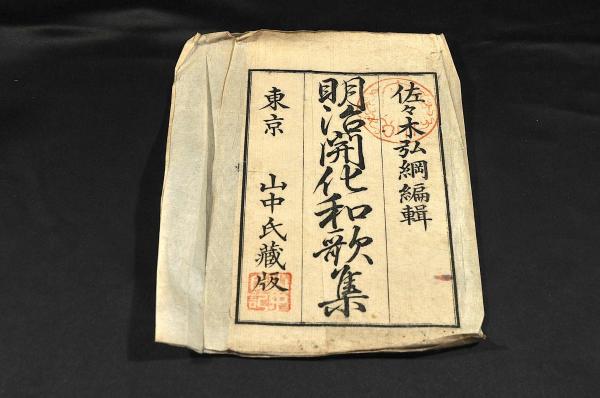 佐々木弘綱編輯
明治開化和歌集
東京 山中氏藏版